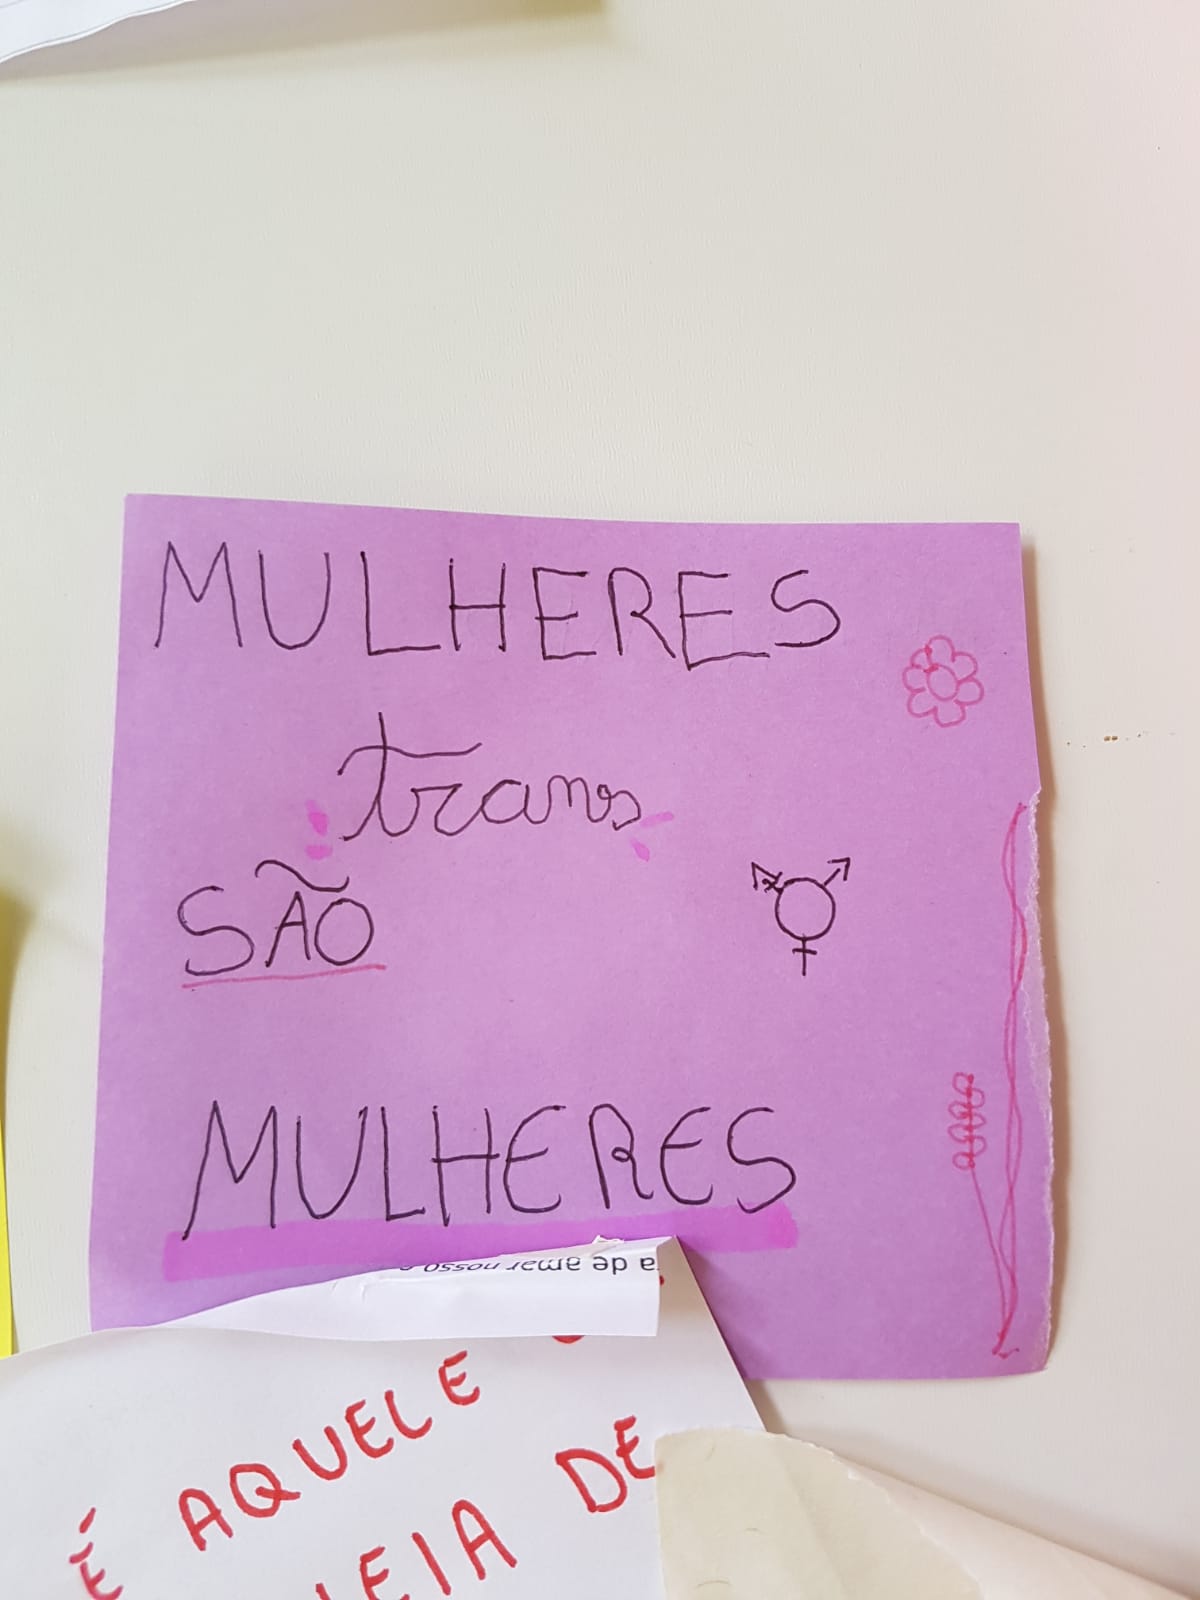 MULHERES
trans
SÃO
MULHERES
a de amar nosso
É AQUELE
DE